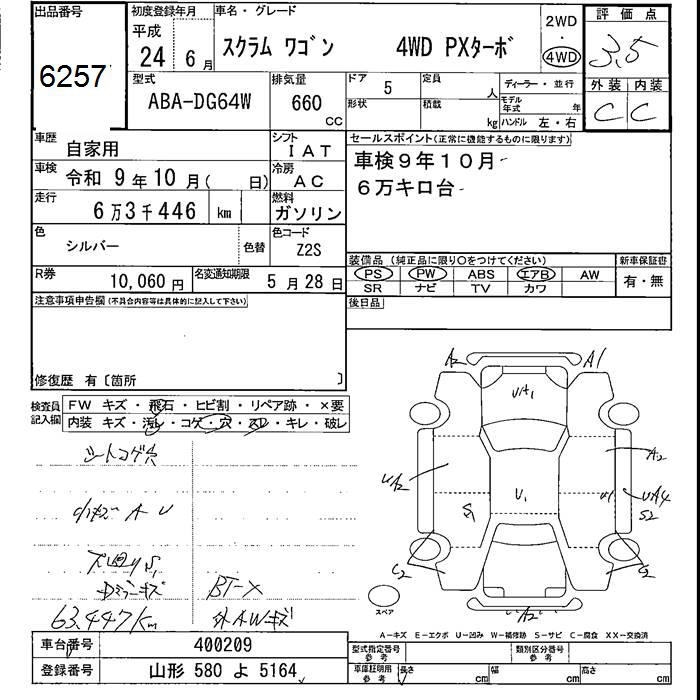 出品番号
6257
初度登録年月
平成
24 6月
車名・グレード
スクラム ワゴン 4WD PXターボ
2WD
・
4WD
評価点
3.5
外装 内装
C C
型式
ABA-DG64W
排気量
660
CC
ドア
5
形状
定員
人
積載
kg
ディーラー・並行
モデル年式 年
ハンドル 左・右
車歴
自家用
シフト
IAT
車検
令和 9年10月( 日)
冷房
AC
走行
6万3千446 km
燃料
ガソリン
色
シルバー
色替
色コード
Z2S
R券
10,060円
名変通知期限
5月28日
セールスポイント(正常に機能するものに限ります)
車検9年10月
6万キロ台
装備品(純正品に限り〇をつけてください)
PS PW ABS エアB AW
SR ナビ TV カワ
新車保証書
有・無
後日品
注意事項申告欄(不具合内容等は具体的に記入して下さい)
修復歴 有〔箇所 〕
検査員
記入欄
FW キズ・飛石・ヒビ割・リペア跡・×要
内装 キズ・汚レ・コゲ・穴・スレ・キレ・破レ
シートコゲ穴
小キズ A U
Dミラーキズ
BT-X
63.447km
外AWキズ
A2
A1
UA1
A2
UA2
U1
S1
U1
UA4
S2
C2
C2
UA2
スペア
A-キズ E-エクボ U-凹み W-補修跡 S-サビ C-腐食 XX-交換済
車台番号
400209
登録番号
山形 580 よ 5164
型式指定番号
参考
類別区分番号
参考
車庫証明用
参考
長さ cm
幅 cm
高さ cm